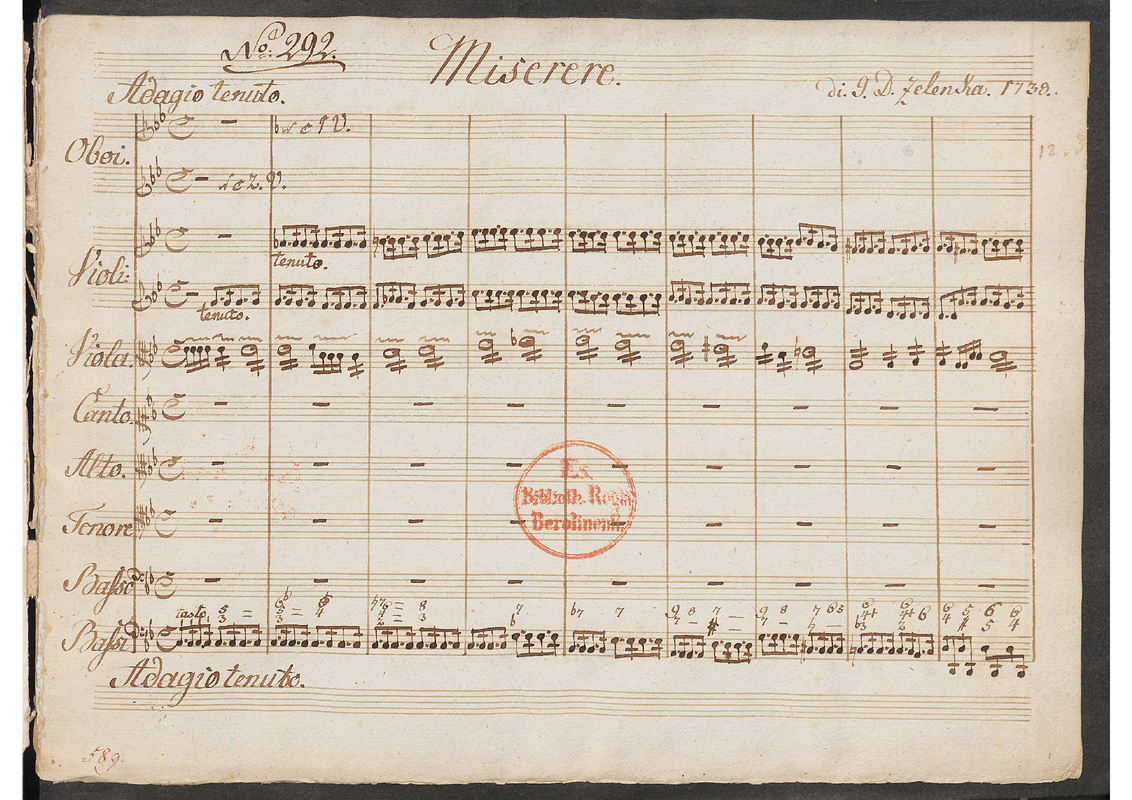 No: 292.
Miserere.
Adagio tenuto.
di. J. D. Zelenka. 1738.
Oboi.
c 1 V.
c 2. V.
Violi:
tenuto.
tenuto.
Viola.
Canto.
Alto.
Ex
Biblioth. Regia
Berolinens.
Tenore
Basso
tasto
Bassi
Adagio tenuto.
589.